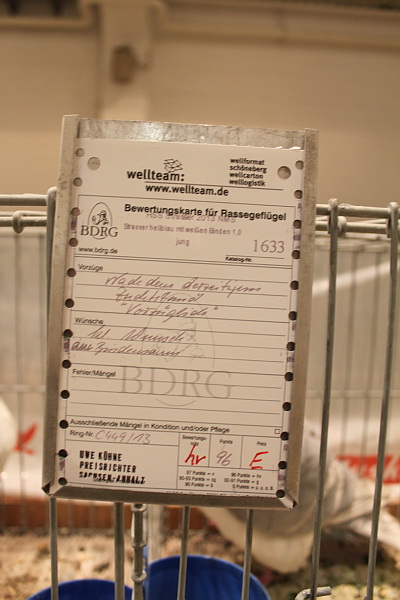 wellteam:
www.wellteam.de
wellformat
schöneberg
wellcarton
welllogistik
Bewertungskarte für Rassegeflügel
HSS Strasser 2013 NMS
Strasser hellblau mit weißen Binden 1,0
jung
BDRG
www.bdrg.de
1633
Katalog-Nr.
Vorzüge
Nach dem derzeitigem
Zuchtstand
"Vorzüglich"
Wünsche
kl. Wunsch z.
BDRG
Fehler/Mängel
Ausschließende Mängel in Kondition und/oder Pflege
Ring-Nr. C449/13
Bewertungs-
note
Punkte
Preis
hv
96
E
UWE KÜHNE
PREISRICHTER
SACHSEN-ANHALT
97 Punkte = v
96 Punkte = hv
93-95 Punkte = sg
90 Punkte = b